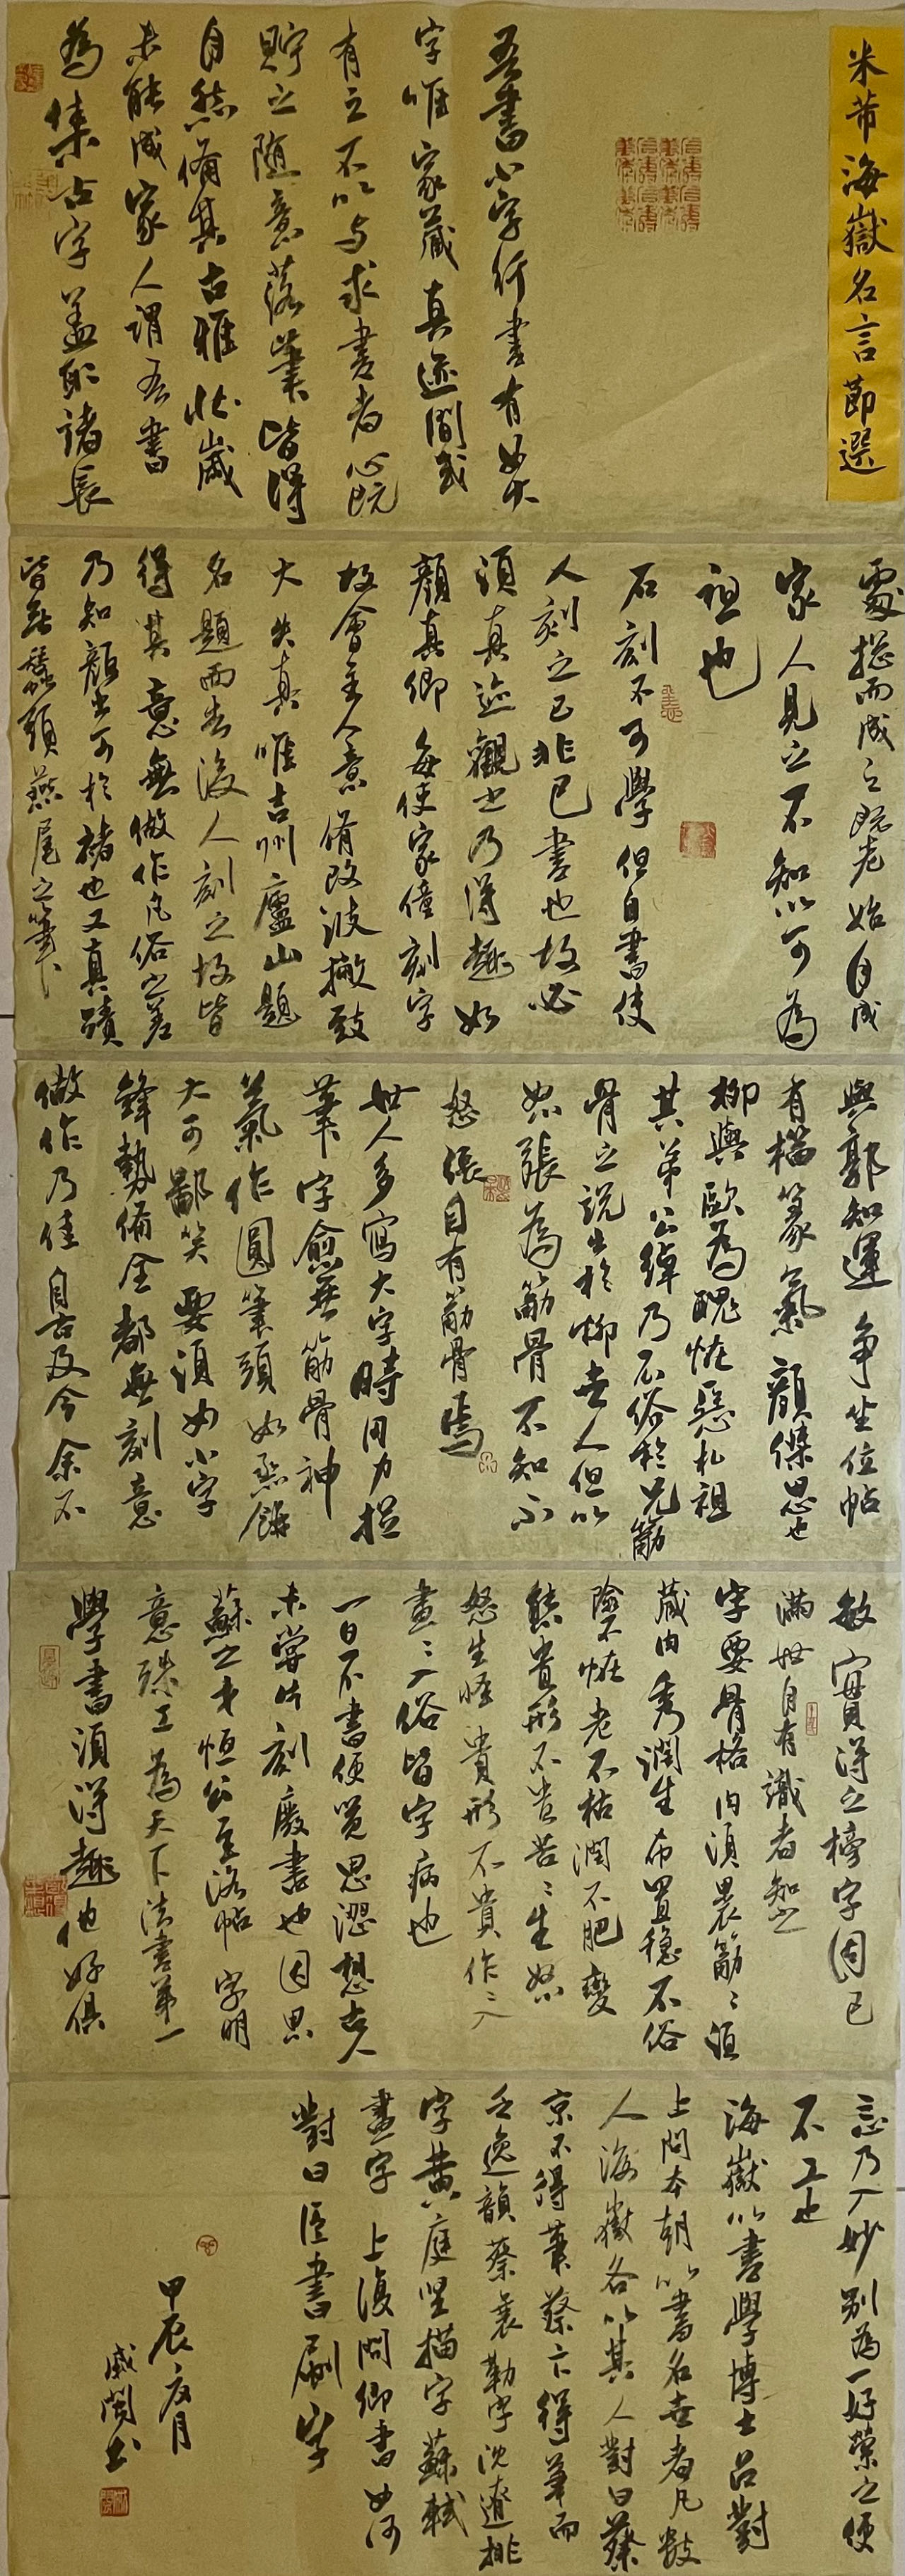 米芾海嶽名言節選
吾書小字行書有如大
字唯家藏真迹間或
有之不以与求書者心既
貯之随意落筆皆得
自然備其古雅壮歲
未能成家人謂吾書
為集古字蓋取諸長
處捴而成之既老始自成
家人見之不知以何為
祖也
石刻不可學但自書使
人刻之已非己書也故必
須真迹觀之乃得趣如
顏真卿每使家僮刻字
故會主人意脩改波撇致
大失真唯吉州廬山題
名題而去後人刻之故皆
得其意無做作凡俗之差
乃知顏出於褚也又真蹟
皆無蠶頭燕尾之筆
與郭知運争坐位帖
有篆氣顏傑思也
柳與歐為醜怪惡札祖
其弟公綽乃不俗於兄筋
骨之說出於柳世人但以
怒張為筋骨不知不
怒張自有筋骨焉
世人多寫大字時用力捉
筆字愈無筋骨神
氣作圓筆頭如蒸餅
大可鄙笑要須如小字
鋒勢備全都無刻意
做作乃佳自古及今余不
敏實得之榜字固已
滿世自有識者知之
字要骨格肉須裹筋筋須
藏肉秀潤生布置穩不俗
險不怪老不枯潤不肥變
態貴形不貴苦苦生怒
怒生怪貴形不貴作作入
畫畫入俗皆字病也
一日不書便覺思澀想古人
未嘗片刻廢書也因思
蘇之才恒公至洛帖字明
意殊工為天下法書第一
學書須得趣他好俱
忘乃入妙别為一好縈之便
不工也
海嶽以書學博士召對
上問本朝以書名世者凡數
人海嶽各以其人對曰蔡
京不得筆蔡卞得筆而
乏逸韻蔡襄勒字沈遼排
字黄庭堅描字蘇軾
畫字上復問卿書如何
對曰臣書刷字
甲辰友月
威閩书